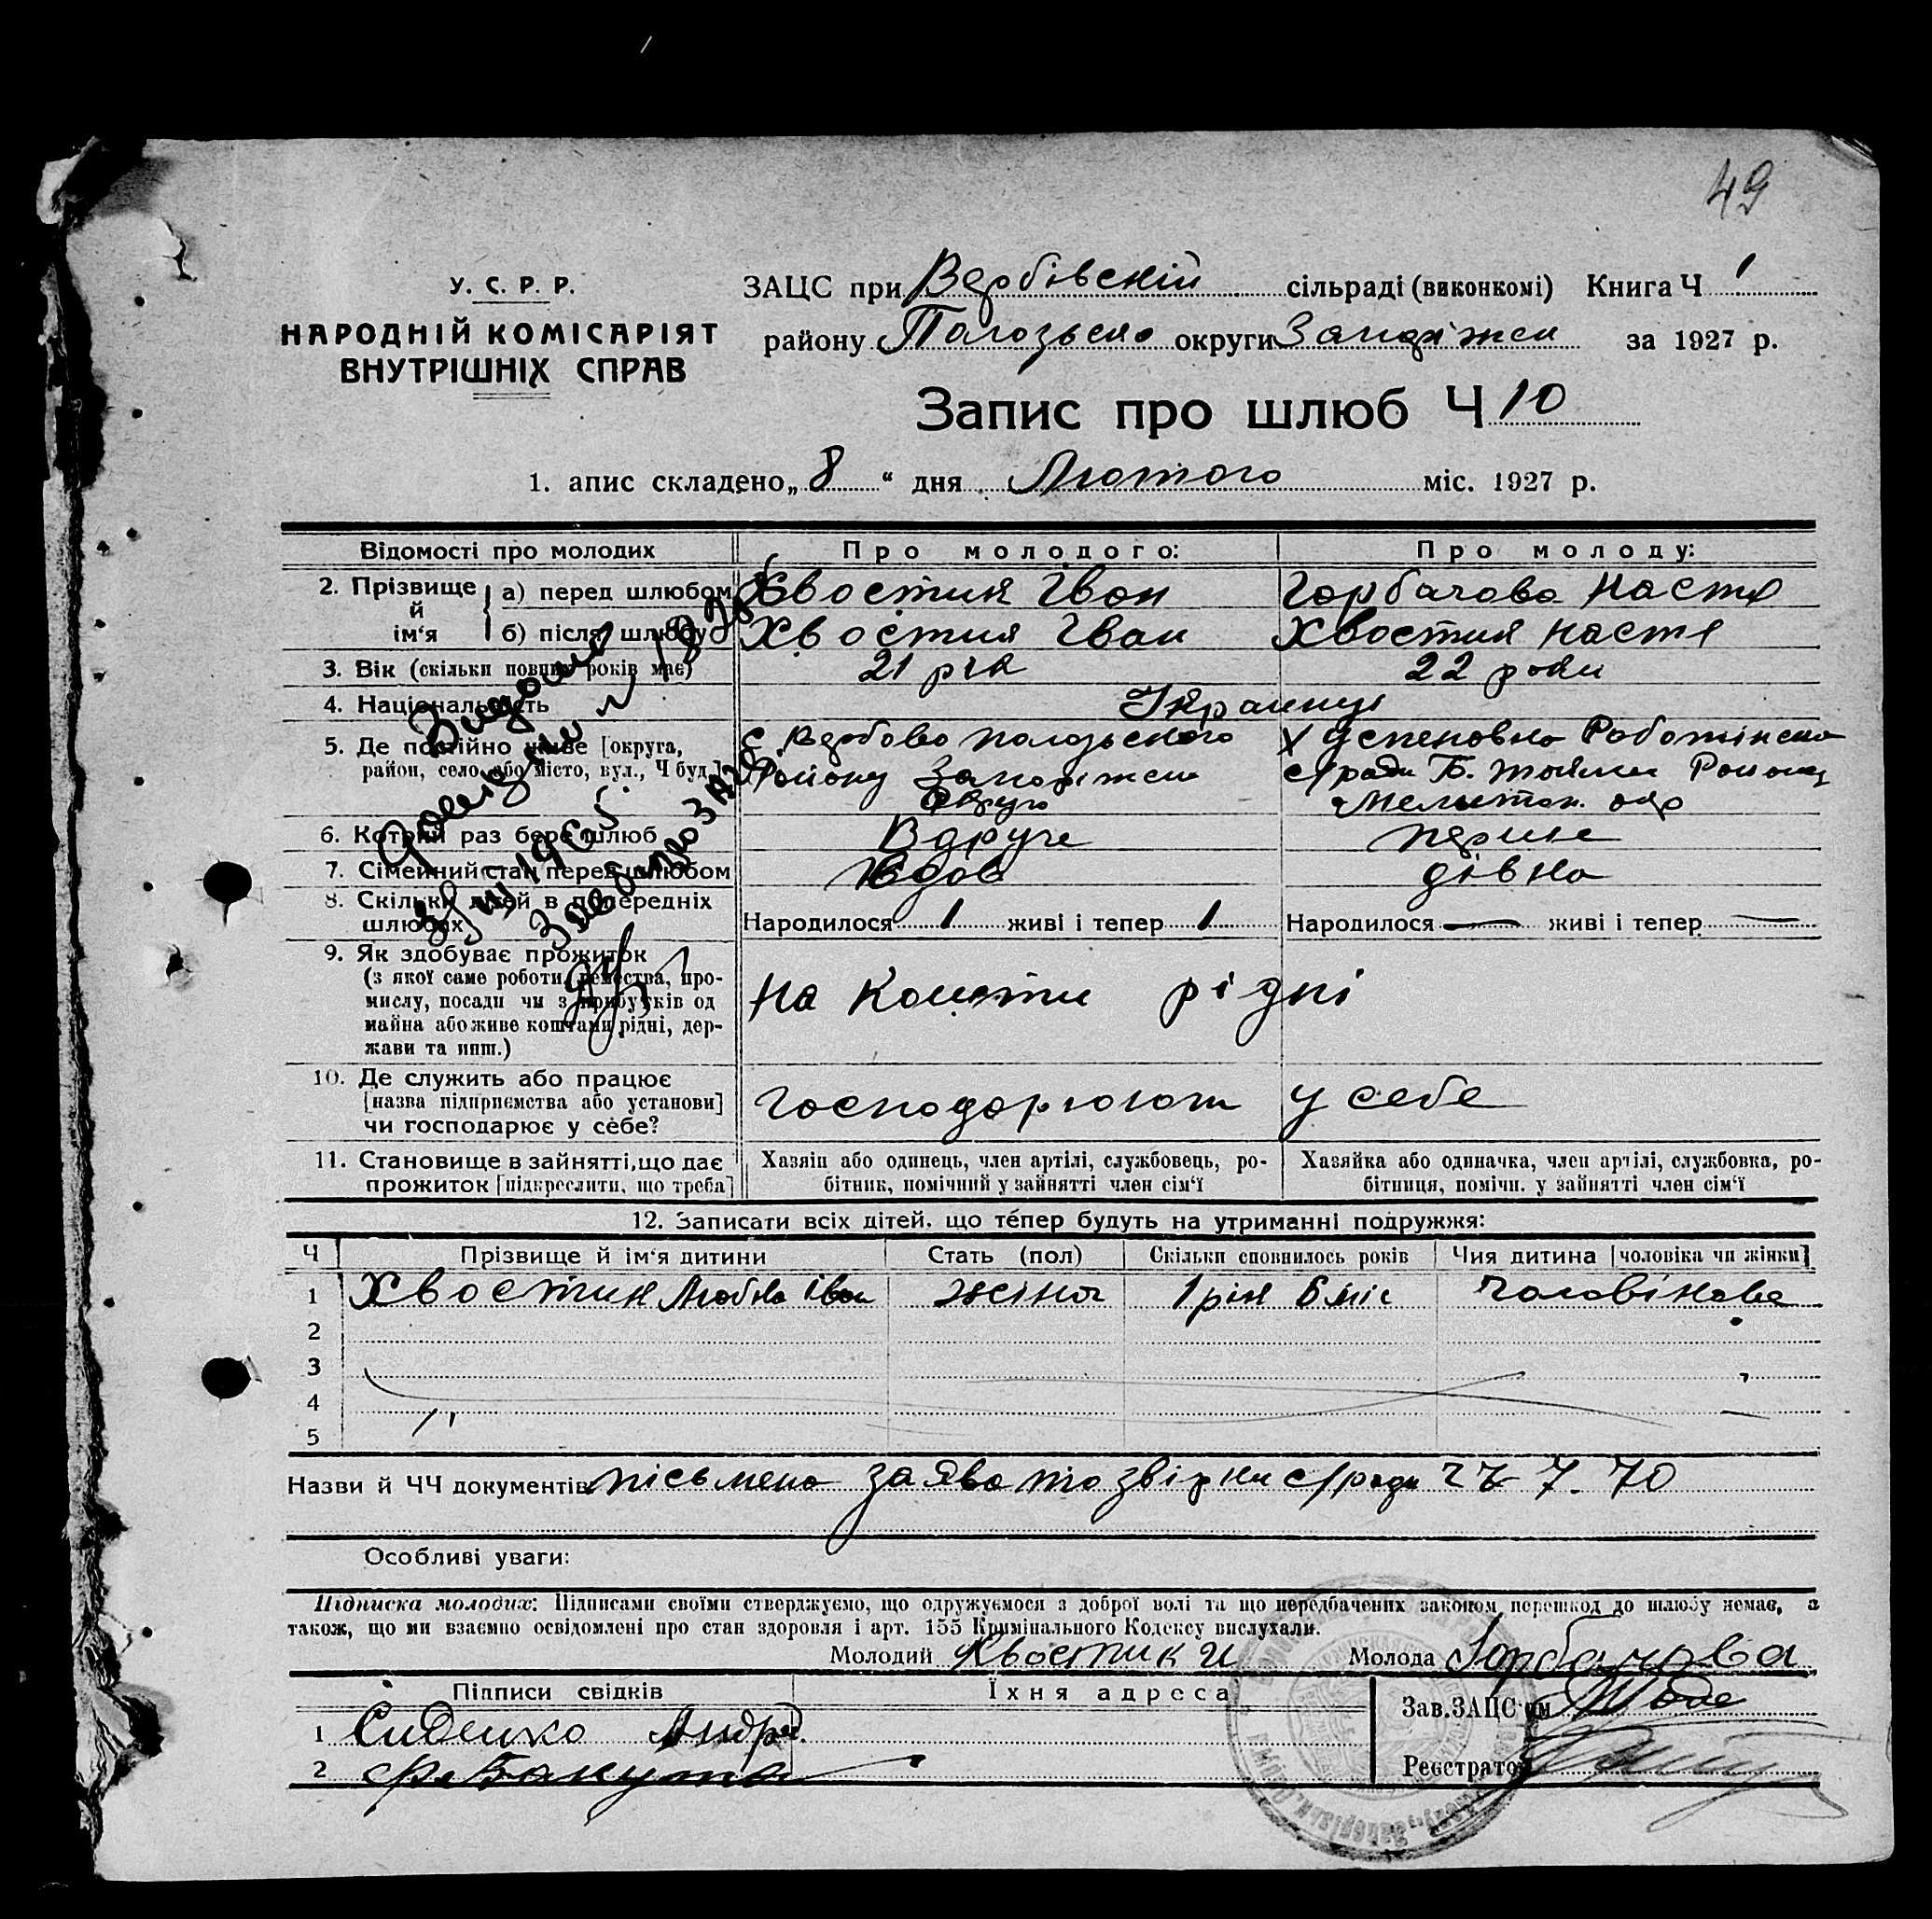 49
У. С. Р. Р.
НАРОДНІЙ КОМІСАРІЯТ
ВНУТРІШНІХ СПРАВ
ЗАЦС при Вербівській сільраді (виконкомі) Книга Ч 1
району Пологзьско округи Запоріжжя за 1927 р.
Запис про шлюб Ч 10
1. апис складено „ 8 “ дня Лютого міс. 1927 р.
Відомості про молодих Про молодого: Про молоду:
2. Прізвище й ім‘я а) перед шлюбом Хвостик Іван Горбачова Настя
б) після шлюбу Хвостик Іван Хвостик Настя
3. Вік (скільки повних років має) 21 рік 22 роки
4. Національність Українці
5. Де постійно живе [округа, с. Вербово Пологського х Успеновка Работінско
район, село або місто, вул., Ч буд.] Району Запоріжськ с/ради Б. Токмак Району
Округи Мелитоп. окр
6. Котрий раз бере шлюб Вдруге перше
7. Сімейний стан перед шлюбом Вдов дівка
8. Скільки дітей в попередніх
шлюбах Народилося 1 живі і тепер 1 Народилося — живі і тепер —
9. Як здобуває прожиток
(з якої саме роботи, ремества, про-
мислу, посади чи з прибутків од
майна або живе коштами рідні, дер-
жави та инш.) На кошти рідні
10. Де служить або працює
[назва підприємства або установи]
чи господарює у себе? Господарюют у себе
11. Становище в зайнятті, що дає Хазяін або одинець, член артілі, службовець, ро- Хазяйка або одиначка, член артілі, службовка, ро-
прожиток [підкреслити, що треба] бітник, помічний у зайнятті член сім‘ї бітниця, помічн. у зайнятті член сім‘ї
12. Записати всіх дітей, що тепер будуть на утриманні подружжя:
Ч Прізвище й ім‘я дитини Стать (пол) Скільки сповнилось років Чия дитина [чоловіка чи жінки]
1 Хвостик Любка Іван жіноч 1 рік 6 міс Чоловікова
2
3
4
5
Назви й ЧЧ документів письмена заява с/ради 7. 70
Особливі уваги:
Підписка молодих: Підписами своїми стверджуємо, що одружуємося з доброї волі та що передбачених законом перешкод до шлюбу немає, а
також, що ми взаємно освідомлені про стан здоровля і арт. 155 Кримінального Кодексу вислухали.
Молодий Хвостик И Молода Горбачова
Підписи свідків Їхня адреса Зав. ЗАЦС‘ом
1 Сиденко Андрі.
2 Реєстратор